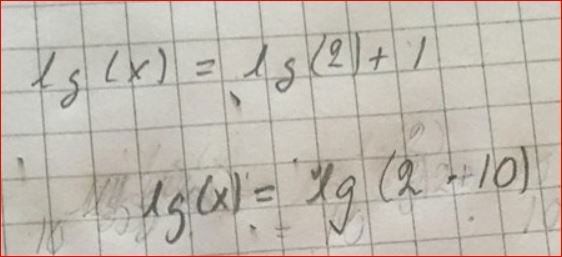 lg(x) = lg(2) + 1
lg(x) = lg(2 · 10)